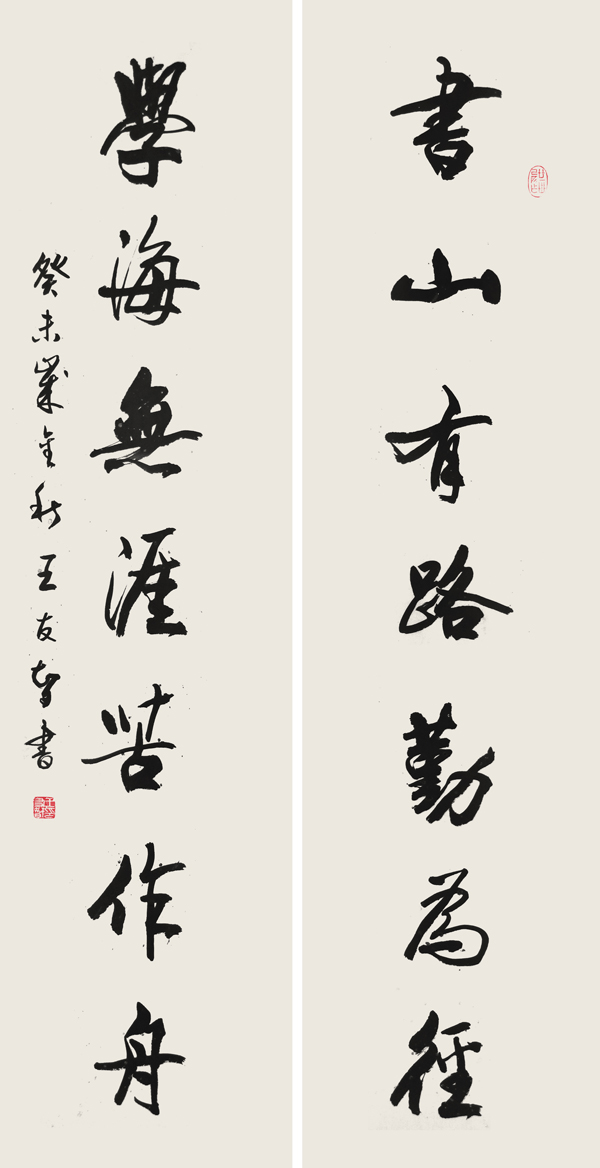 書山有路勤為徑
學海無涯苦作舟
癸未歲金秋王友智書